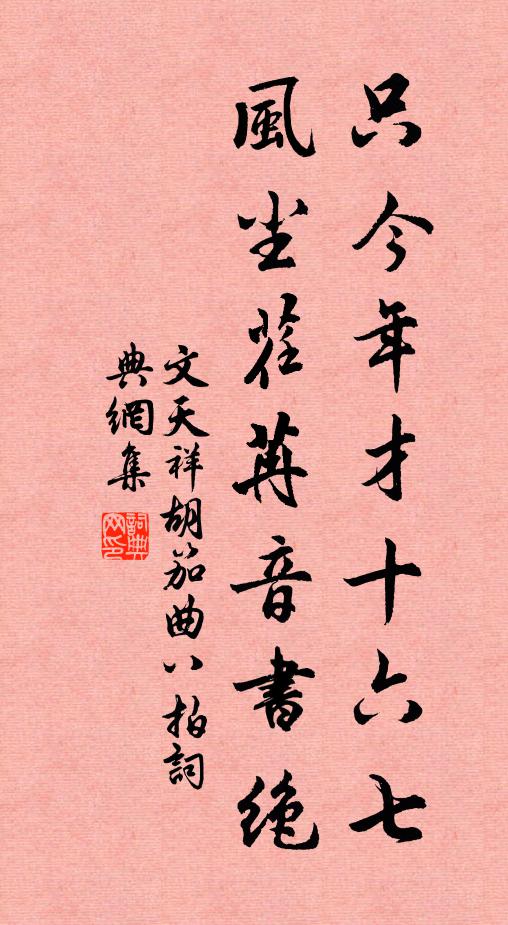 只今年才十六七
風尘荏苒音書絶
文天祥胡笳曲八拍詞
典網集
詞典
网印